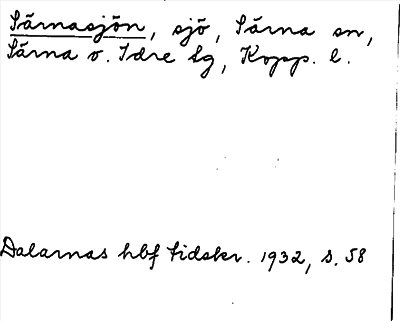 Särnasjön, sjö, Särna sn,
Särna o. Idre lg, Kopp. l.
Dalarnas hbf tidskr. 1932, s. 58